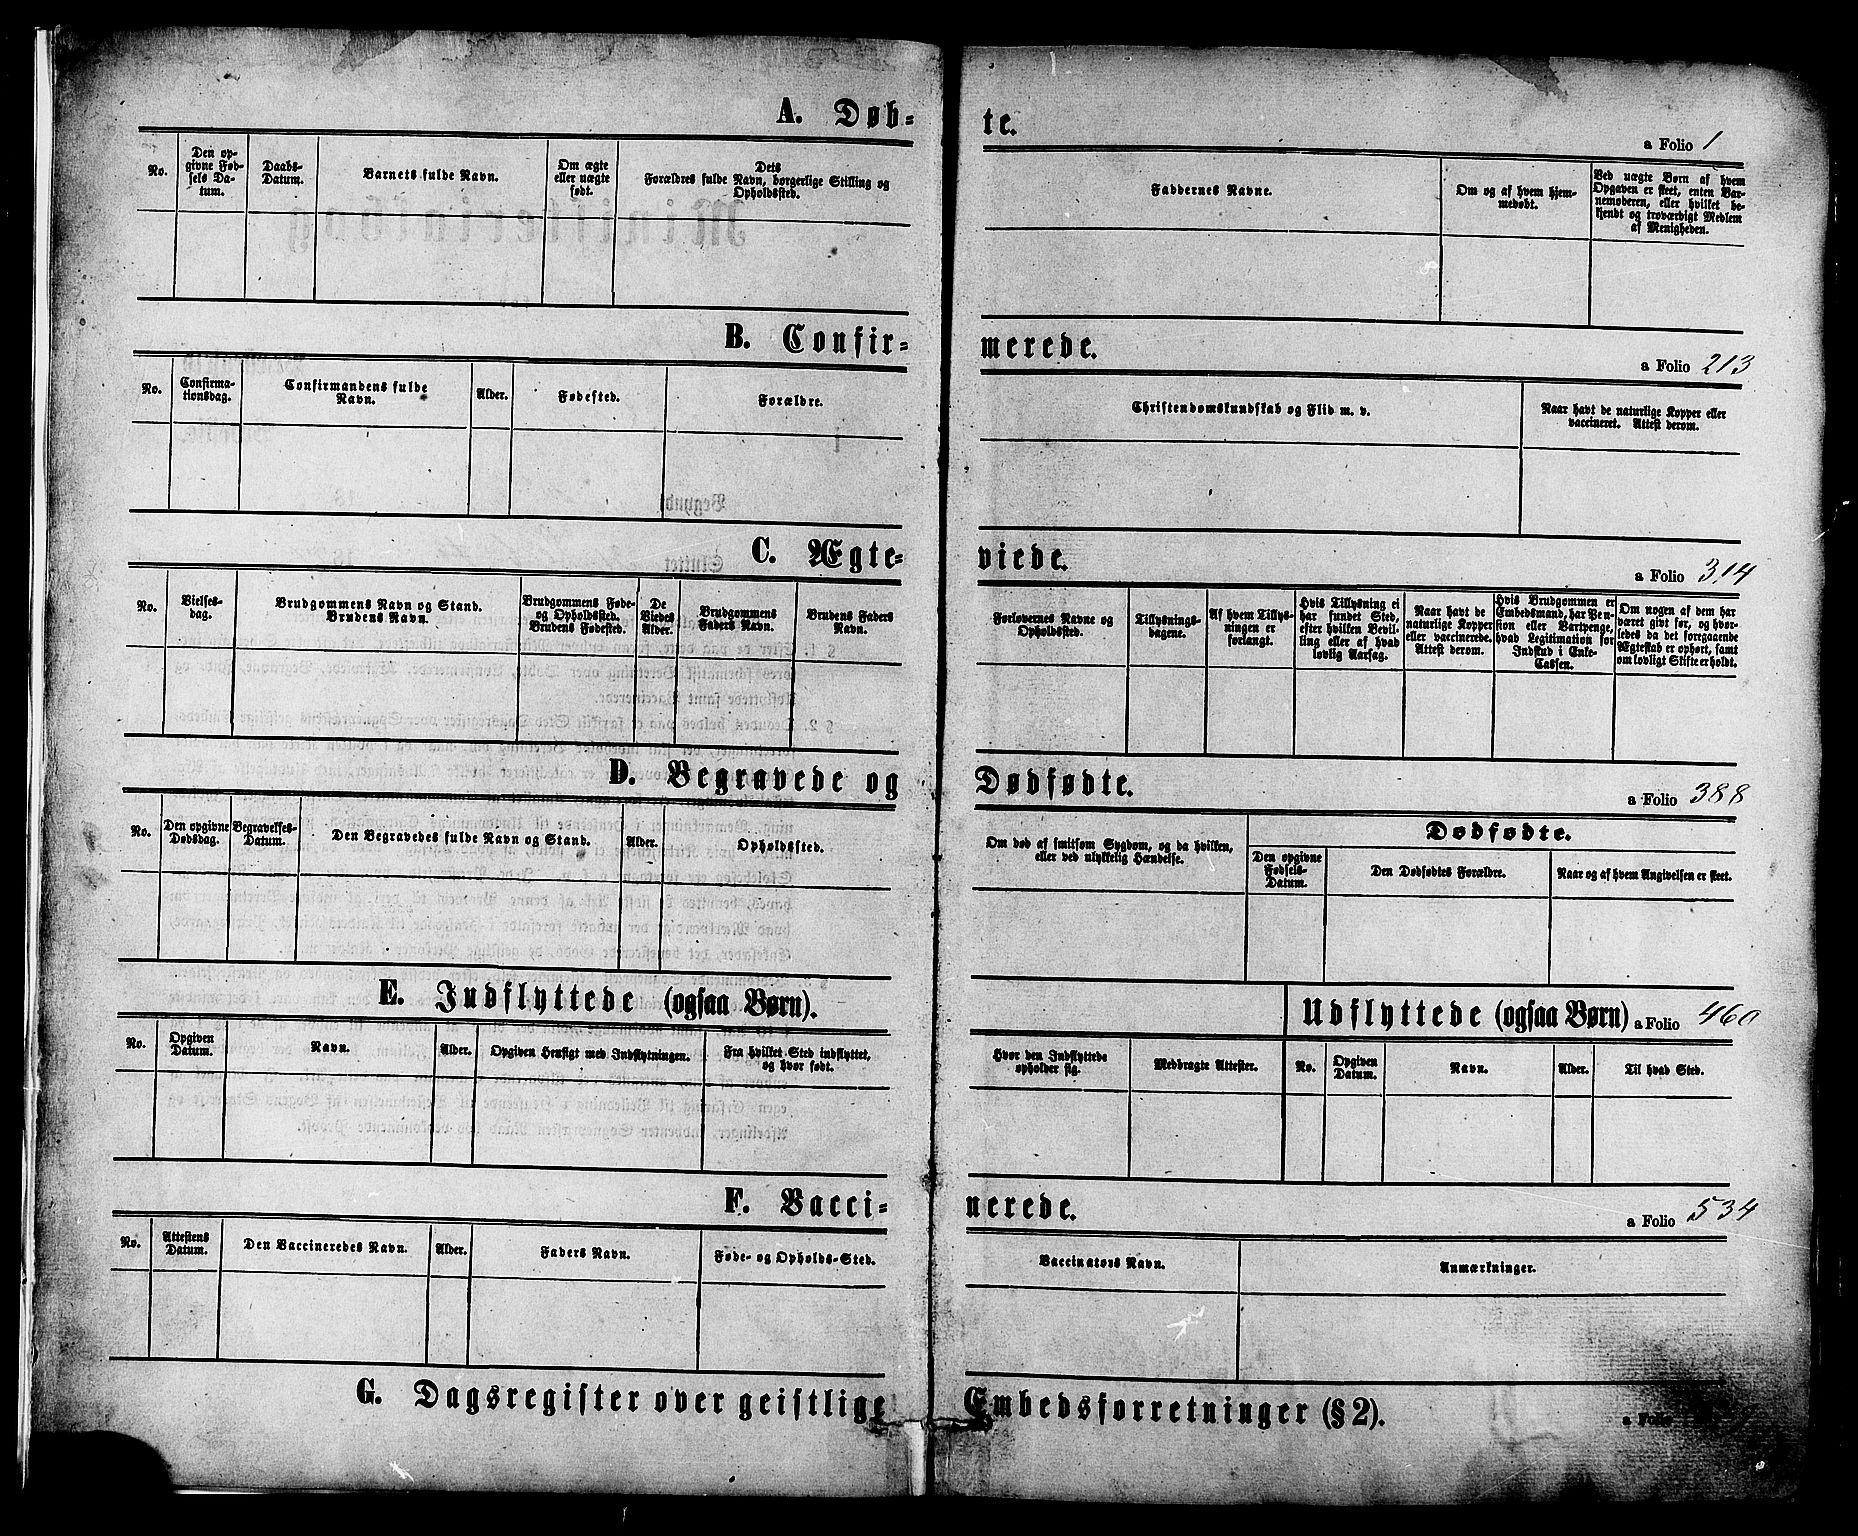 A. Døbte.
a Folio 1
No.
Den opgivne Fødsels Datum.
Daabs-Datum.
Barnets fulde Navn.
Om ægte eller uægte født.
Dets Forældres fulde Navn, borgerlige Stilling og Opholdssted.
Faddernes Navne.
Om og af hvem hjemmedøbt.
Ved uægte Børn af hvem Opgaven er skeet, enten Barnemoderen, eller hvilket bekjendt og troværdigt Medlem af Menigheden.
B. Confirmerede.
a Folio 213
No.
Confirmationsdag.
Confirmandens fulde Navn.
Alder.
Fødested.
Forældre.
Christendomskundskab og Flid m. v.
Naar havt de naturlige Kopper eller vaccineret. Attest derom.
C. Ægteviede.
a Folio 314
No.
Vielsesdag.
Brudgommens Navn og Stand. Brudens Navn.
Brudgommens Føde- og Opholdssted. Brudens Fødested.
De Viedes Alder.
Brudgommens Faders Navn.
Brudens Faders Navn.
Forlovernes Navne og Opholdssted.
Tillysningsdagene.
Af hvem Tillysningen er forlangt.
Hvis Tillysning ei har fundet Sted, efter hvilken Bevilling eller af hvad lovlig Aarsag.
Naar havt de naturlige Kopper eller vaccinerede. Attest derom.
Hvis Brudgommen er Embedsmand, har Pension eller Vartpenge, hvad Legitimation for Indskud i Enke-Cassen.
Om nogen af dem har været gift før, og hvorledes da det foregaaende Ægteskab er ophørt, samt om lovligt Skifte er holdt.
D. Begravede og Dødfødte.
a Folio 388
No.
Den opgivne Dødsdag.
Begravelses-Datum.
Den Begravedes fulde Navn og Stand.
Alder.
Opholdssted.
Om død af smitsom Sygdom, og da hvilken, eller ved ulykkelig Hændelse.
Dødfødte.
Den opgivne Fødsels-Datum.
Den Dødfødtes Forældre.
Naar og af hvem Angivelsen er skeet.
E. Indflyttede (ogsaa Børn).
Udflyttede (ogsaa Børn)
a Folio 460
No.
Opgiven Datum.
Navn.
Alder.
Opgiven Hensigt med Indflytningen.
Fra hvilket Sted indflyttet, og hvor født.
Hvor den Indflyttede opholder sig.
Medbragte Attester.
No.
Opgiven Datum.
Navn.
Alder.
Til hvad Sted.
F. Vaccinerede.
a Folio 534
No.
Attestens Datum.
Den Vaccineredes Navn.
Alder.
Faders Navn.
Føde- og Opholds-Sted.
Vaccinators Navn.
Anmærkninger.
G. Dagsregister over geistlige Embedsforretninger (§ 2).
a Folio